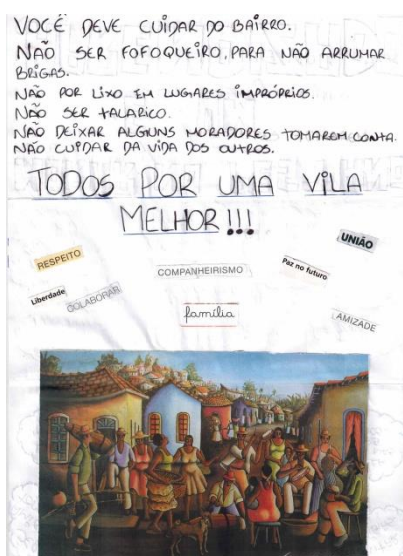 VOCÊ DEVE CUIDAR DO BAIRRO.
NÃO SER FOFOQUEIRO, PARA NÃO ARRUMAR
BRIGAS.
NÃO POR LIXO EM LUGARES IMPRÓPRIOS.
NÃO SER TALARICO.
NÃO DEIXAR ALGUNS MORADORES TOMAREM CONTA.
NÃO CUIDAR DA VIDA DOS OUTROS.
TODOS POR UMA VILA
MELHOR!!!
UNIÃO
RESPEITO
COMPANHEIRISMO
Paz no futuro
Liberdade
COLABORAR
família
AMIZADE